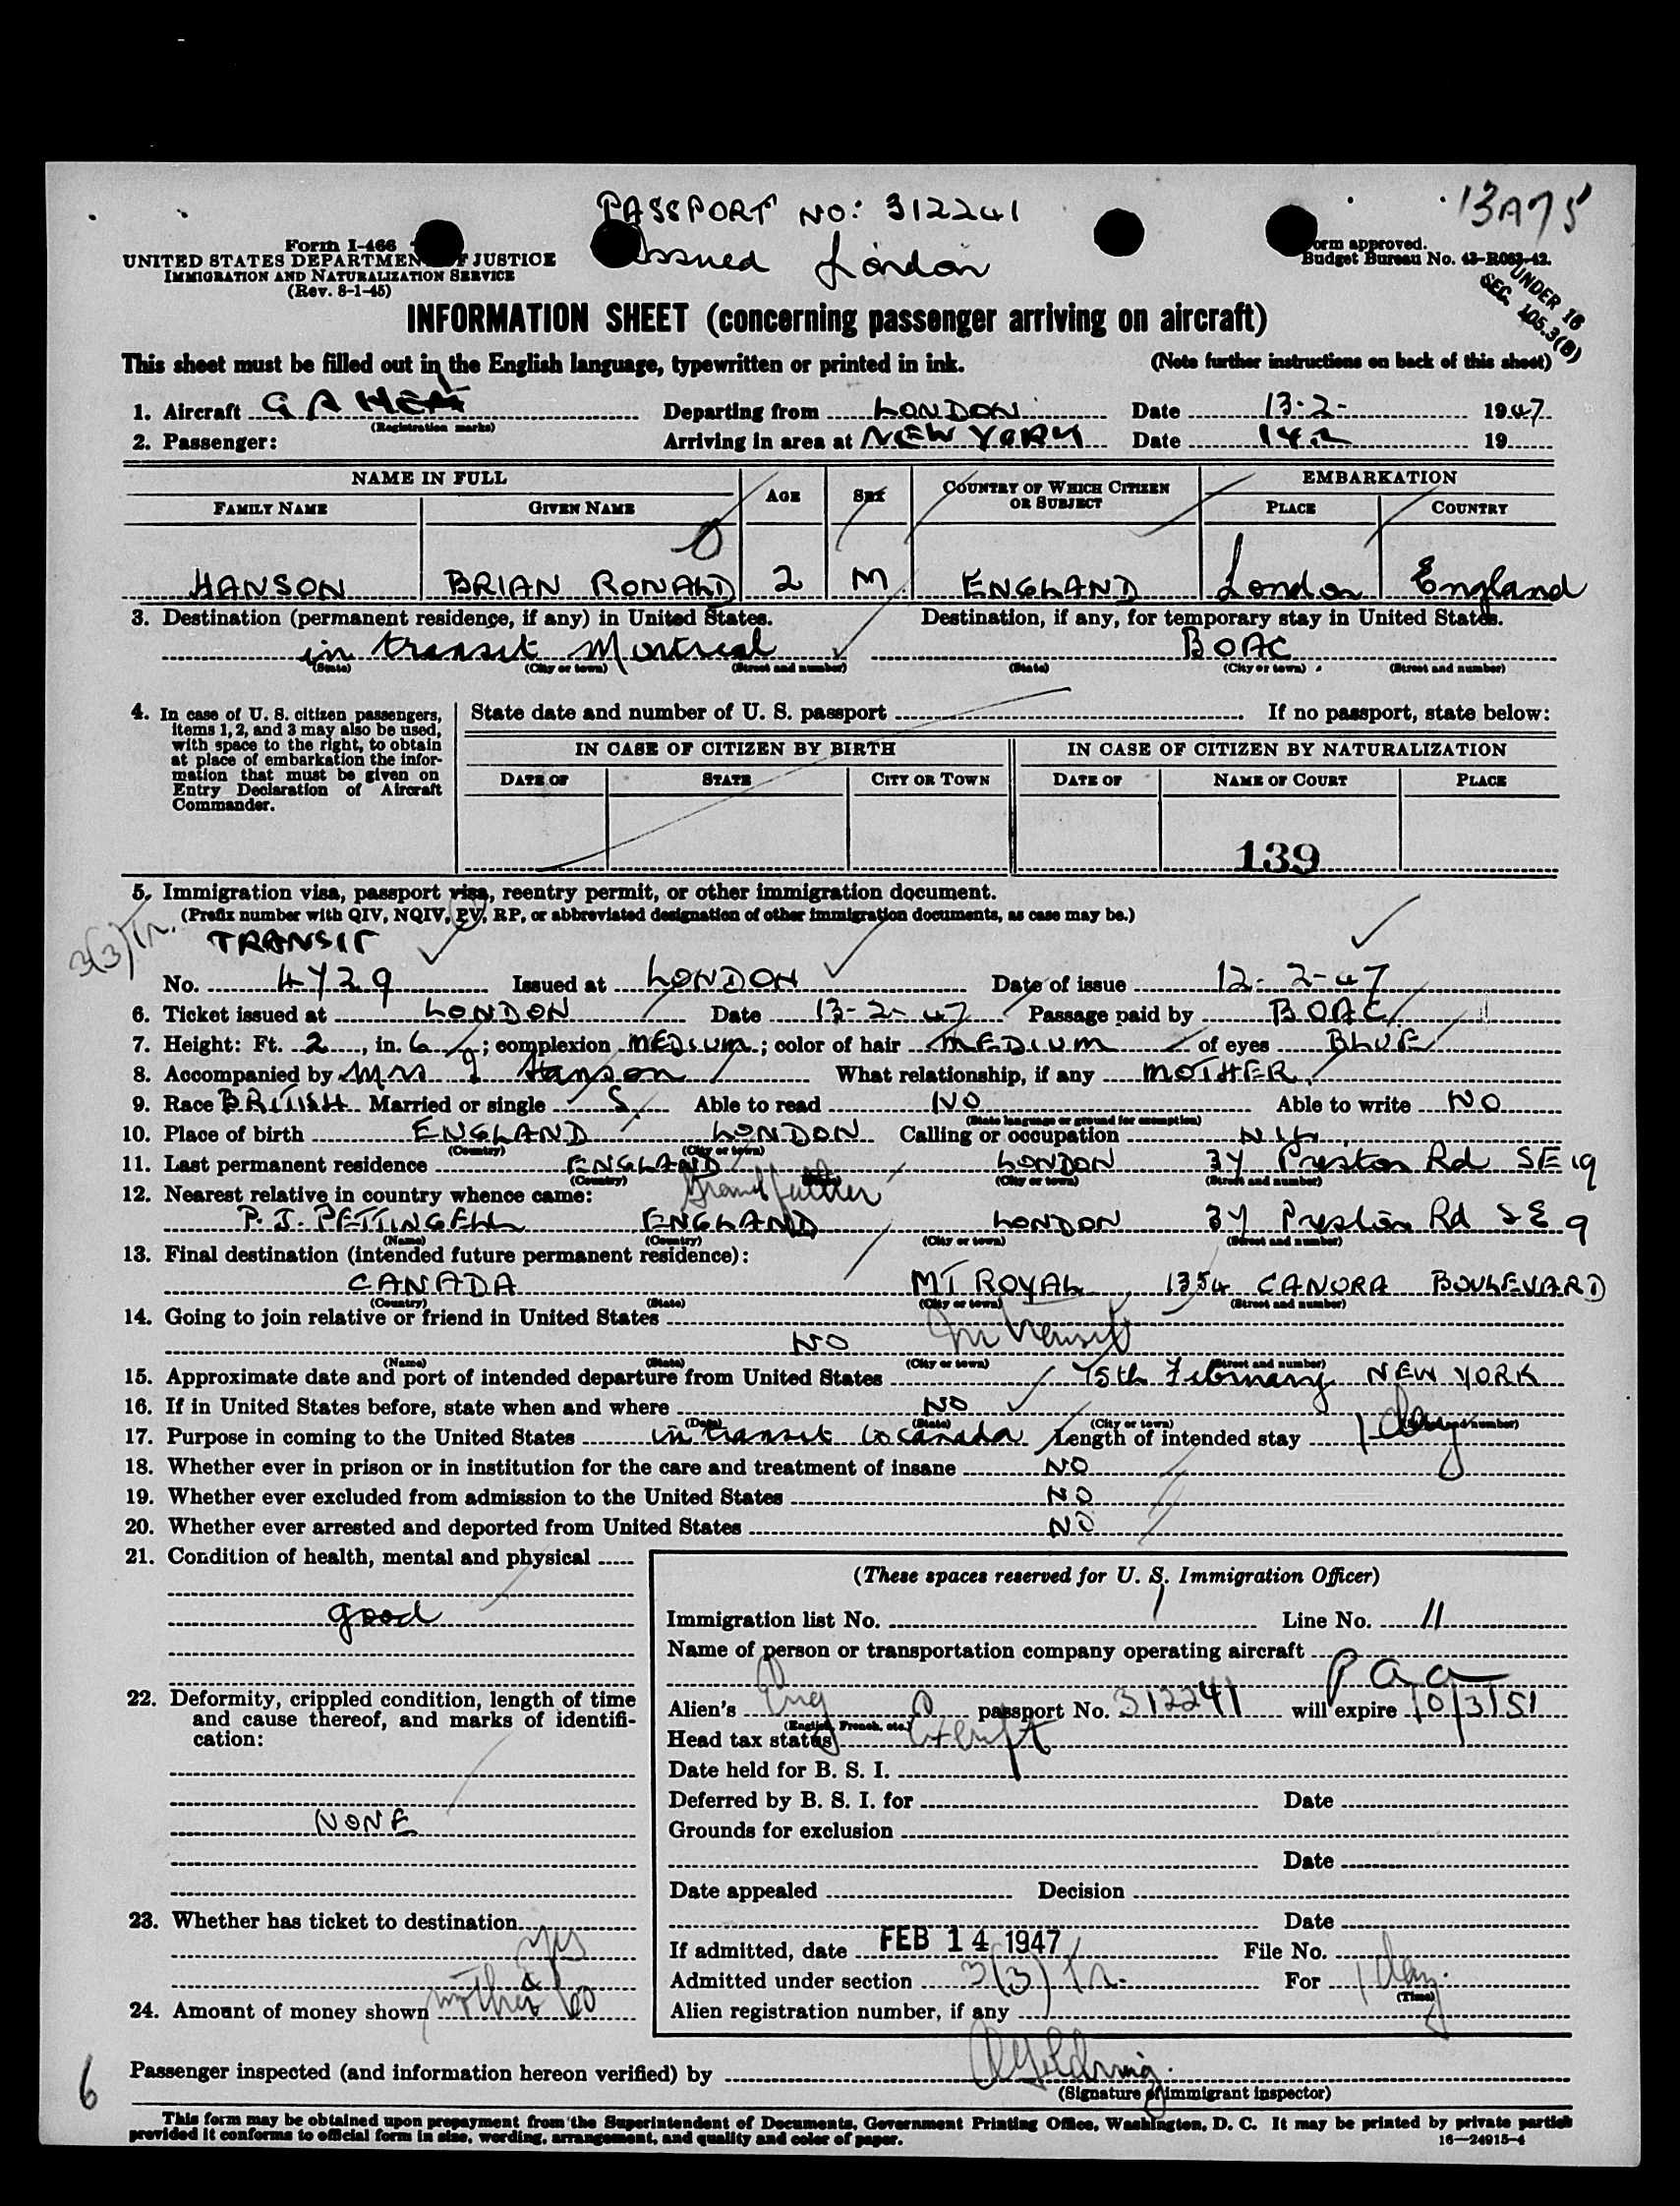 PASSPORT NO: 312241
13A75
Form I-466
UNITED STATES DEPARTMENT OF JUSTICE
IMMIGRATION AND NATURALIZATION SERVICE
(Rev. 8-1-45)
Issued London
Form approved.
Budget Bureau No. 43-R083-42.
UNDER 16
SEC. 105.3(B)
INFORMATION SHEET (concerning passenger arriving on aircraft)
This sheet must be filled out in the English language, typewritten or printed in ink. (Note further instructions on back of this sheet)
1. Aircraft Departing from LONDON Date 13-2- 1947
(Registration marks)
2. Passenger: Arriving in area at NEW YORK Date 14.2 19
NAME IN FULL AGE SEX COUNTRY OF WHICH CITIZEN OR SUBJECT EMBARKATION
FAMILY NAME GIVEN NAME PLACE COUNTRY
HANSON BRIAN RONALD 2 M ENGLAND London England
3. Destination (permanent residence, if any) in United States. Destination, if any, for temporary stay in United States.
in transit Montreal BOAC
(State) (City or town) (Street and number) (State) (City or town) (Street and number)
4. In case of U. S. citizen passengers,
items 1, 2, and 3 may also be used,
with space to the right, to obtain
at place of embarkation the infor-
mation that must be given on
Entry Declaration of Aircraft
Commander.
State date and number of U. S. passport If no passport, state below:
IN CASE OF CITIZEN BY BIRTH IN CASE OF CITIZEN BY NATURALIZATION
DATE OF STATE CITY OR TOWN DATE OF NAME OF COURT PLACE
139
5. Immigration visa, passport visa, reentry permit, or other immigration document.
(Prefix number with QIV, NQIV, PV, RP, or abbreviated designation of other immigration documents, as case may be.)
3(3)tr.
TRANSIT
No. 4729 Issued at LONDON Date of issue 12-2-47
6. Ticket issued at LONDON Date 13-2-47 Passage paid by BOAC
7. Height: Ft. 2, in. 6; complexion MEDIUM; color of hair MEDIUM of eyes BLUE
8. Accompanied by Mrs J Hanson What relationship, if any MOTHER
9. Race BRITISH Married or single S. Able to read NO Able to write NO
(State language or ground for exemption)
10. Place of birth ENGLAND LONDON Calling or occupation NIL
(Country) (City or town)
11. Last permanent residence ENGLAND LONDON 37 Preston Rd SE 19
(Country) (City or town) (Street and number)
12. Nearest relative in country whence came: Grandfather
P. J. PETTINGELL ENGLAND LONDON 37 Preston Rd SE 9
(Name) (Country) (City or town) (Street and number)
13. Final destination (intended future permanent residence):
CANADA MT ROYAL 1354 CANORA BOULEVARD
(Country) (State) (City or town) (Street and number)
14. Going to join relative or friend in United States
NO In transit
(Name) (State) (City or town) (Street and number)
15. Approximate date and port of intended departure from United States 15th February NEW YORK
16. If in United States before, state when and where NO
(Date) (State) (City or town) (Street and number)
17. Purpose in coming to the United States in transit to Canada Length of intended stay 1 day
18. Whether ever in prison or in institution for the care and treatment of insane NO
19. Whether ever excluded from admission to the United States NO
20. Whether ever arrested and deported from United States NO
21. Condition of health, mental and physical
good
22. Deformity, crippled condition, length of time
and cause thereof, and marks of identifi-
cation:
NONE
23. Whether has ticket to destination
yes
24. Amount of money shown mother
(These spaces reserved for U. S. Immigration Officer)
Immigration list No. 1 Line No. 11
Name of person or transportation company operating aircraft
Paa
Alien's Eng passport No. 312241 will expire 10/3/51
(English, French, etc.)
Head tax status Exempt
Date held for B. S. I.
Deferred by B. S. I. for Date
Grounds for exclusion
Date
Date appealed Decision
Date
If admitted, date FEB 14 1947 File No.
Admitted under section 3(3) tr. For 1 day.
(Time)
Alien registration number, if any
6
Passenger inspected (and information hereon verified) by
(Signature of immigrant inspector)
This form may be obtained upon prepayment from the Superintendent of Documents, Government Printing Office, Washington, D. C. It may be printed by private parties
provided it conforms to official form in size, wording, arrangement, and quality and color of paper.
16—24915-4